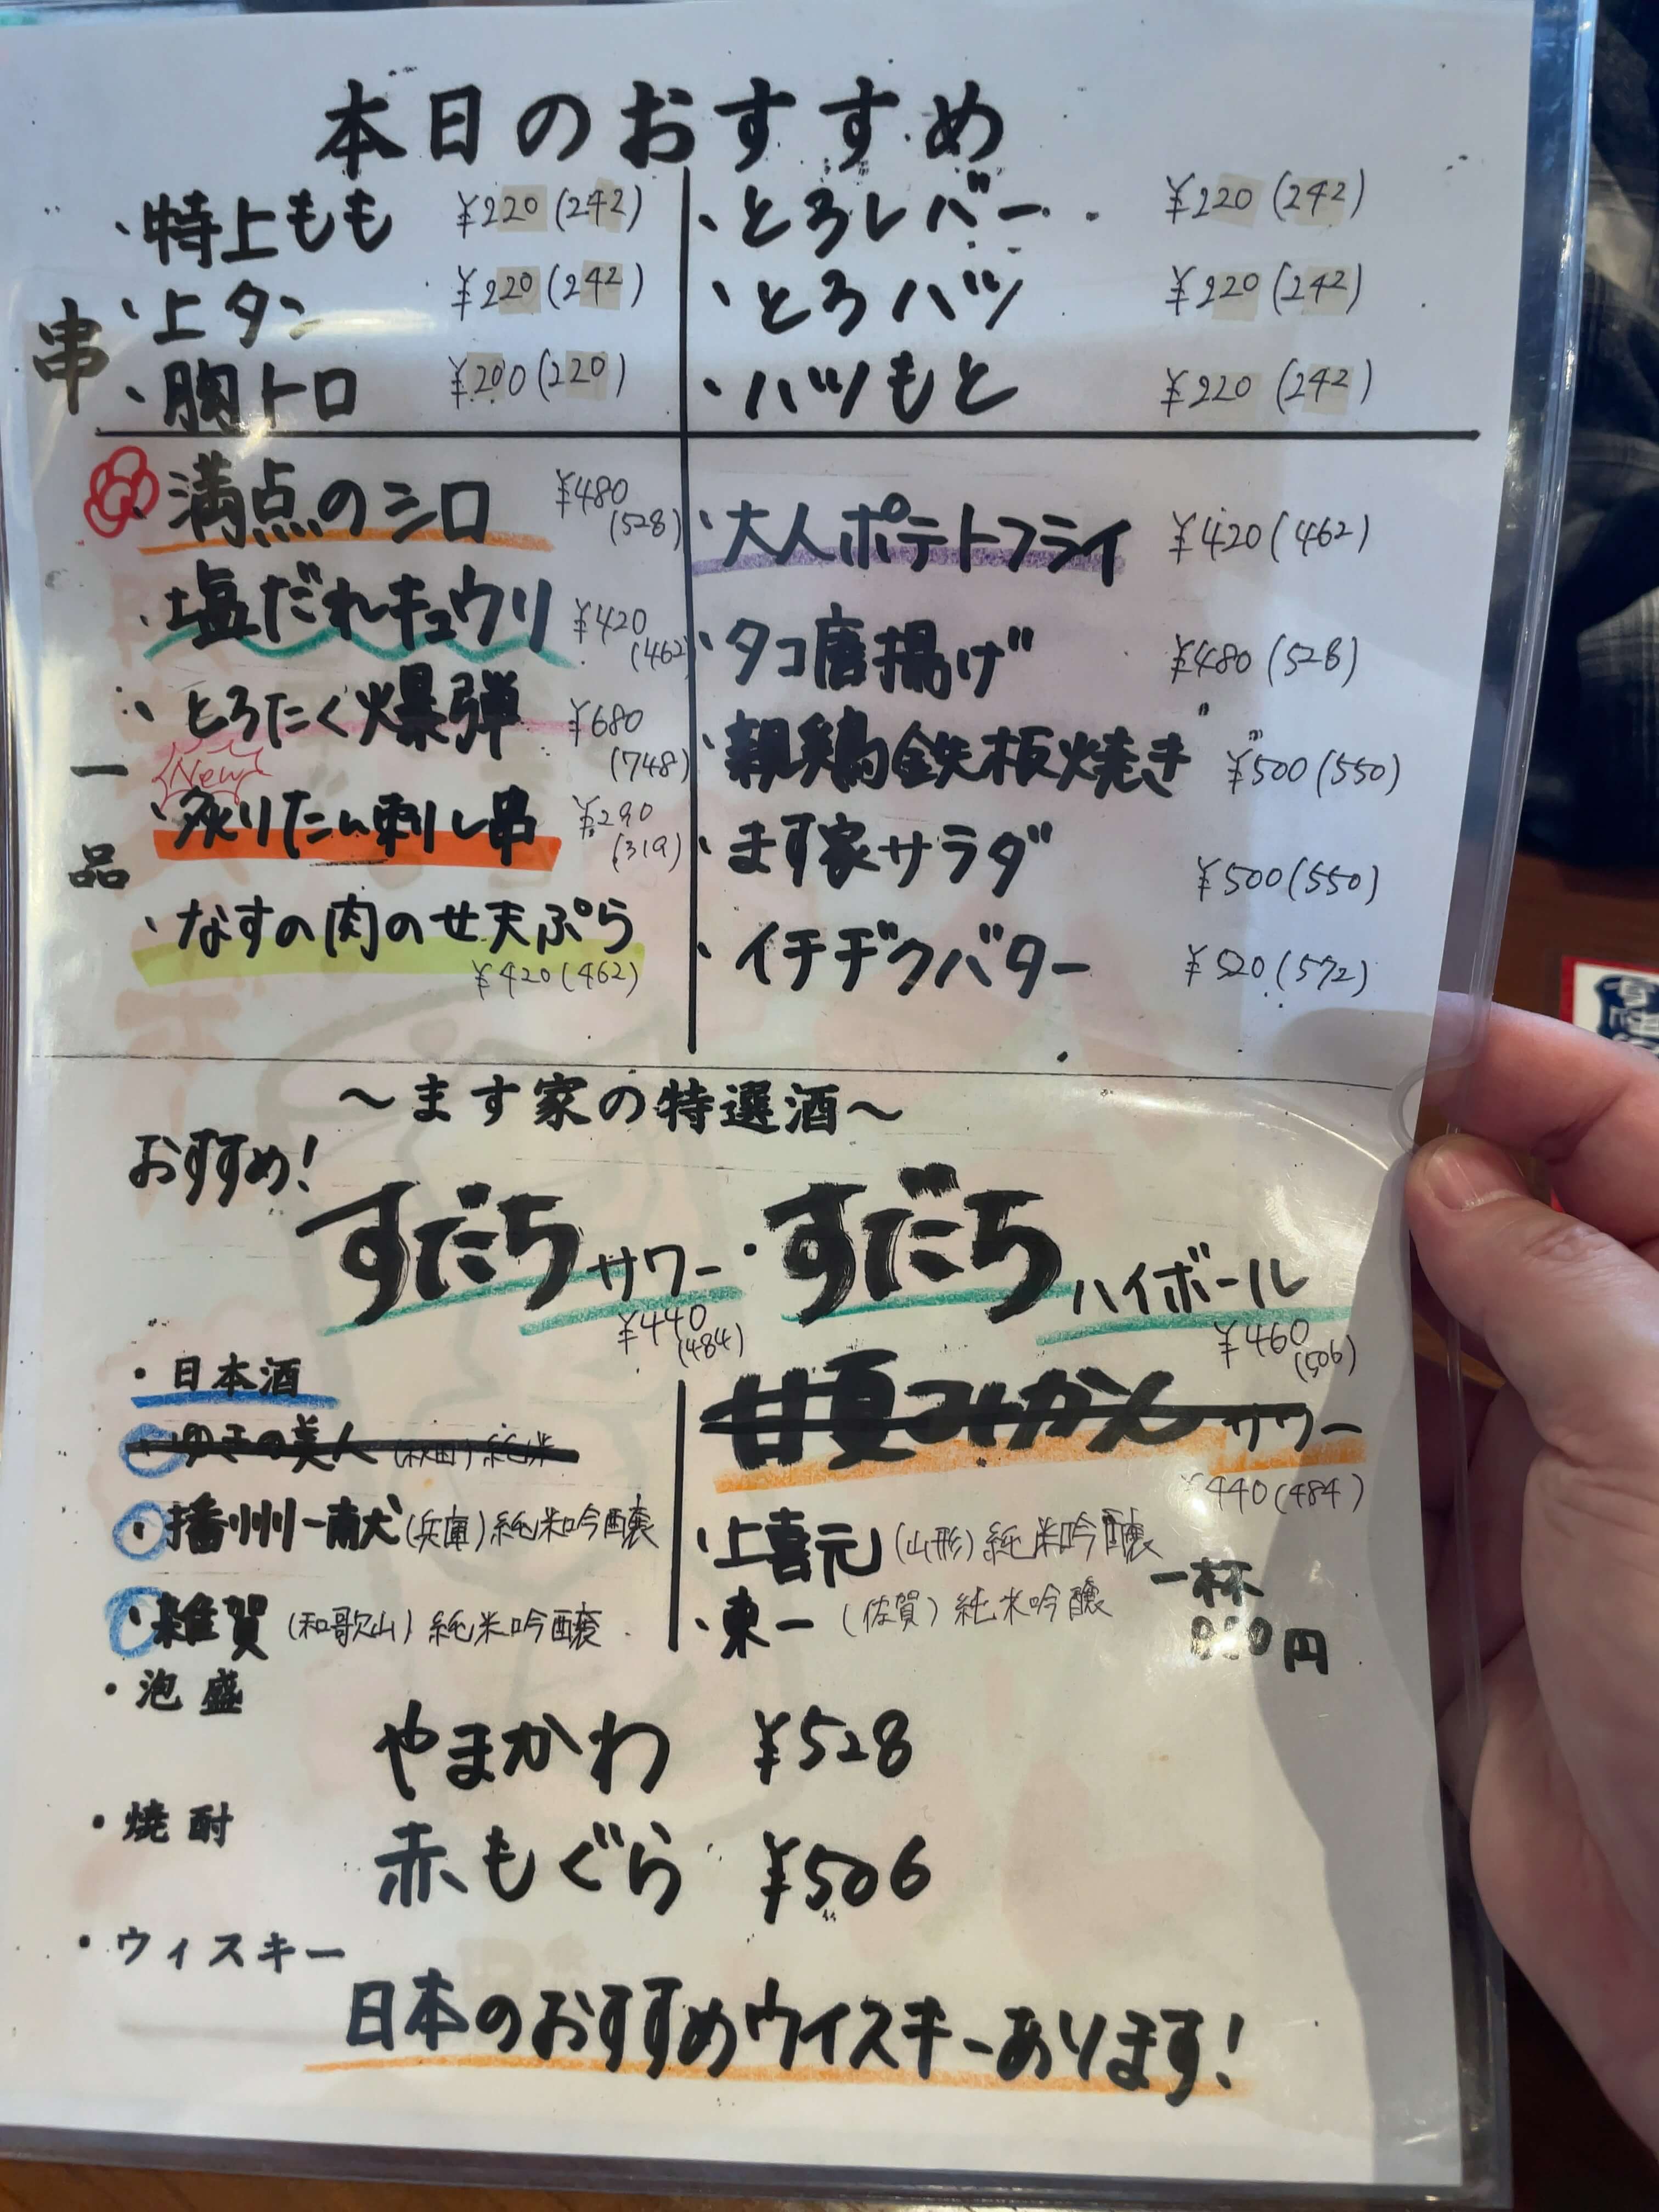 本日のおすすめ
串
・特上もも ¥220(242)
・上タン ¥220(242)
・胸トロ ¥200(220)
・とろレバー ¥220(242)
・とろハツ ¥220(242)
・ハツもと ¥220(242)
一品
・満点のシロ ¥480(528)
・塩だれキュウリ ¥420(462)
・とろたく爆弾 ¥680(748)
New
・炙りたん刺し串 ¥290(319)
・なすの肉のせ天ぷら
¥420(462)
・大人ポテトフライ ¥420(462)
・タコ唐揚げ ¥480(528)
・親鶏鉄板焼き ¥500(550)
・ます家サラダ ¥500(550)
・イチヂクバター ¥520(572)
〜ます家の特選酒〜
おすすめ!
すだちサワー・すだちハイボール
¥440(484) ¥460(506)
・日本酒
・ゆきの美人(秋田)純米
・播州一献(兵庫)純米吟醸
・雑賀(和歌山)純米吟醸
甘夏みかんサワー
¥440(484)
・上喜元(山形)純米吟醸
・東一(佐賀)純米吟醸
一杯
円
・泡盛
やまかわ ¥528
・焼酎
赤もぐら ¥506
・ウィスキー
日本のおすすめウイスキーあります!